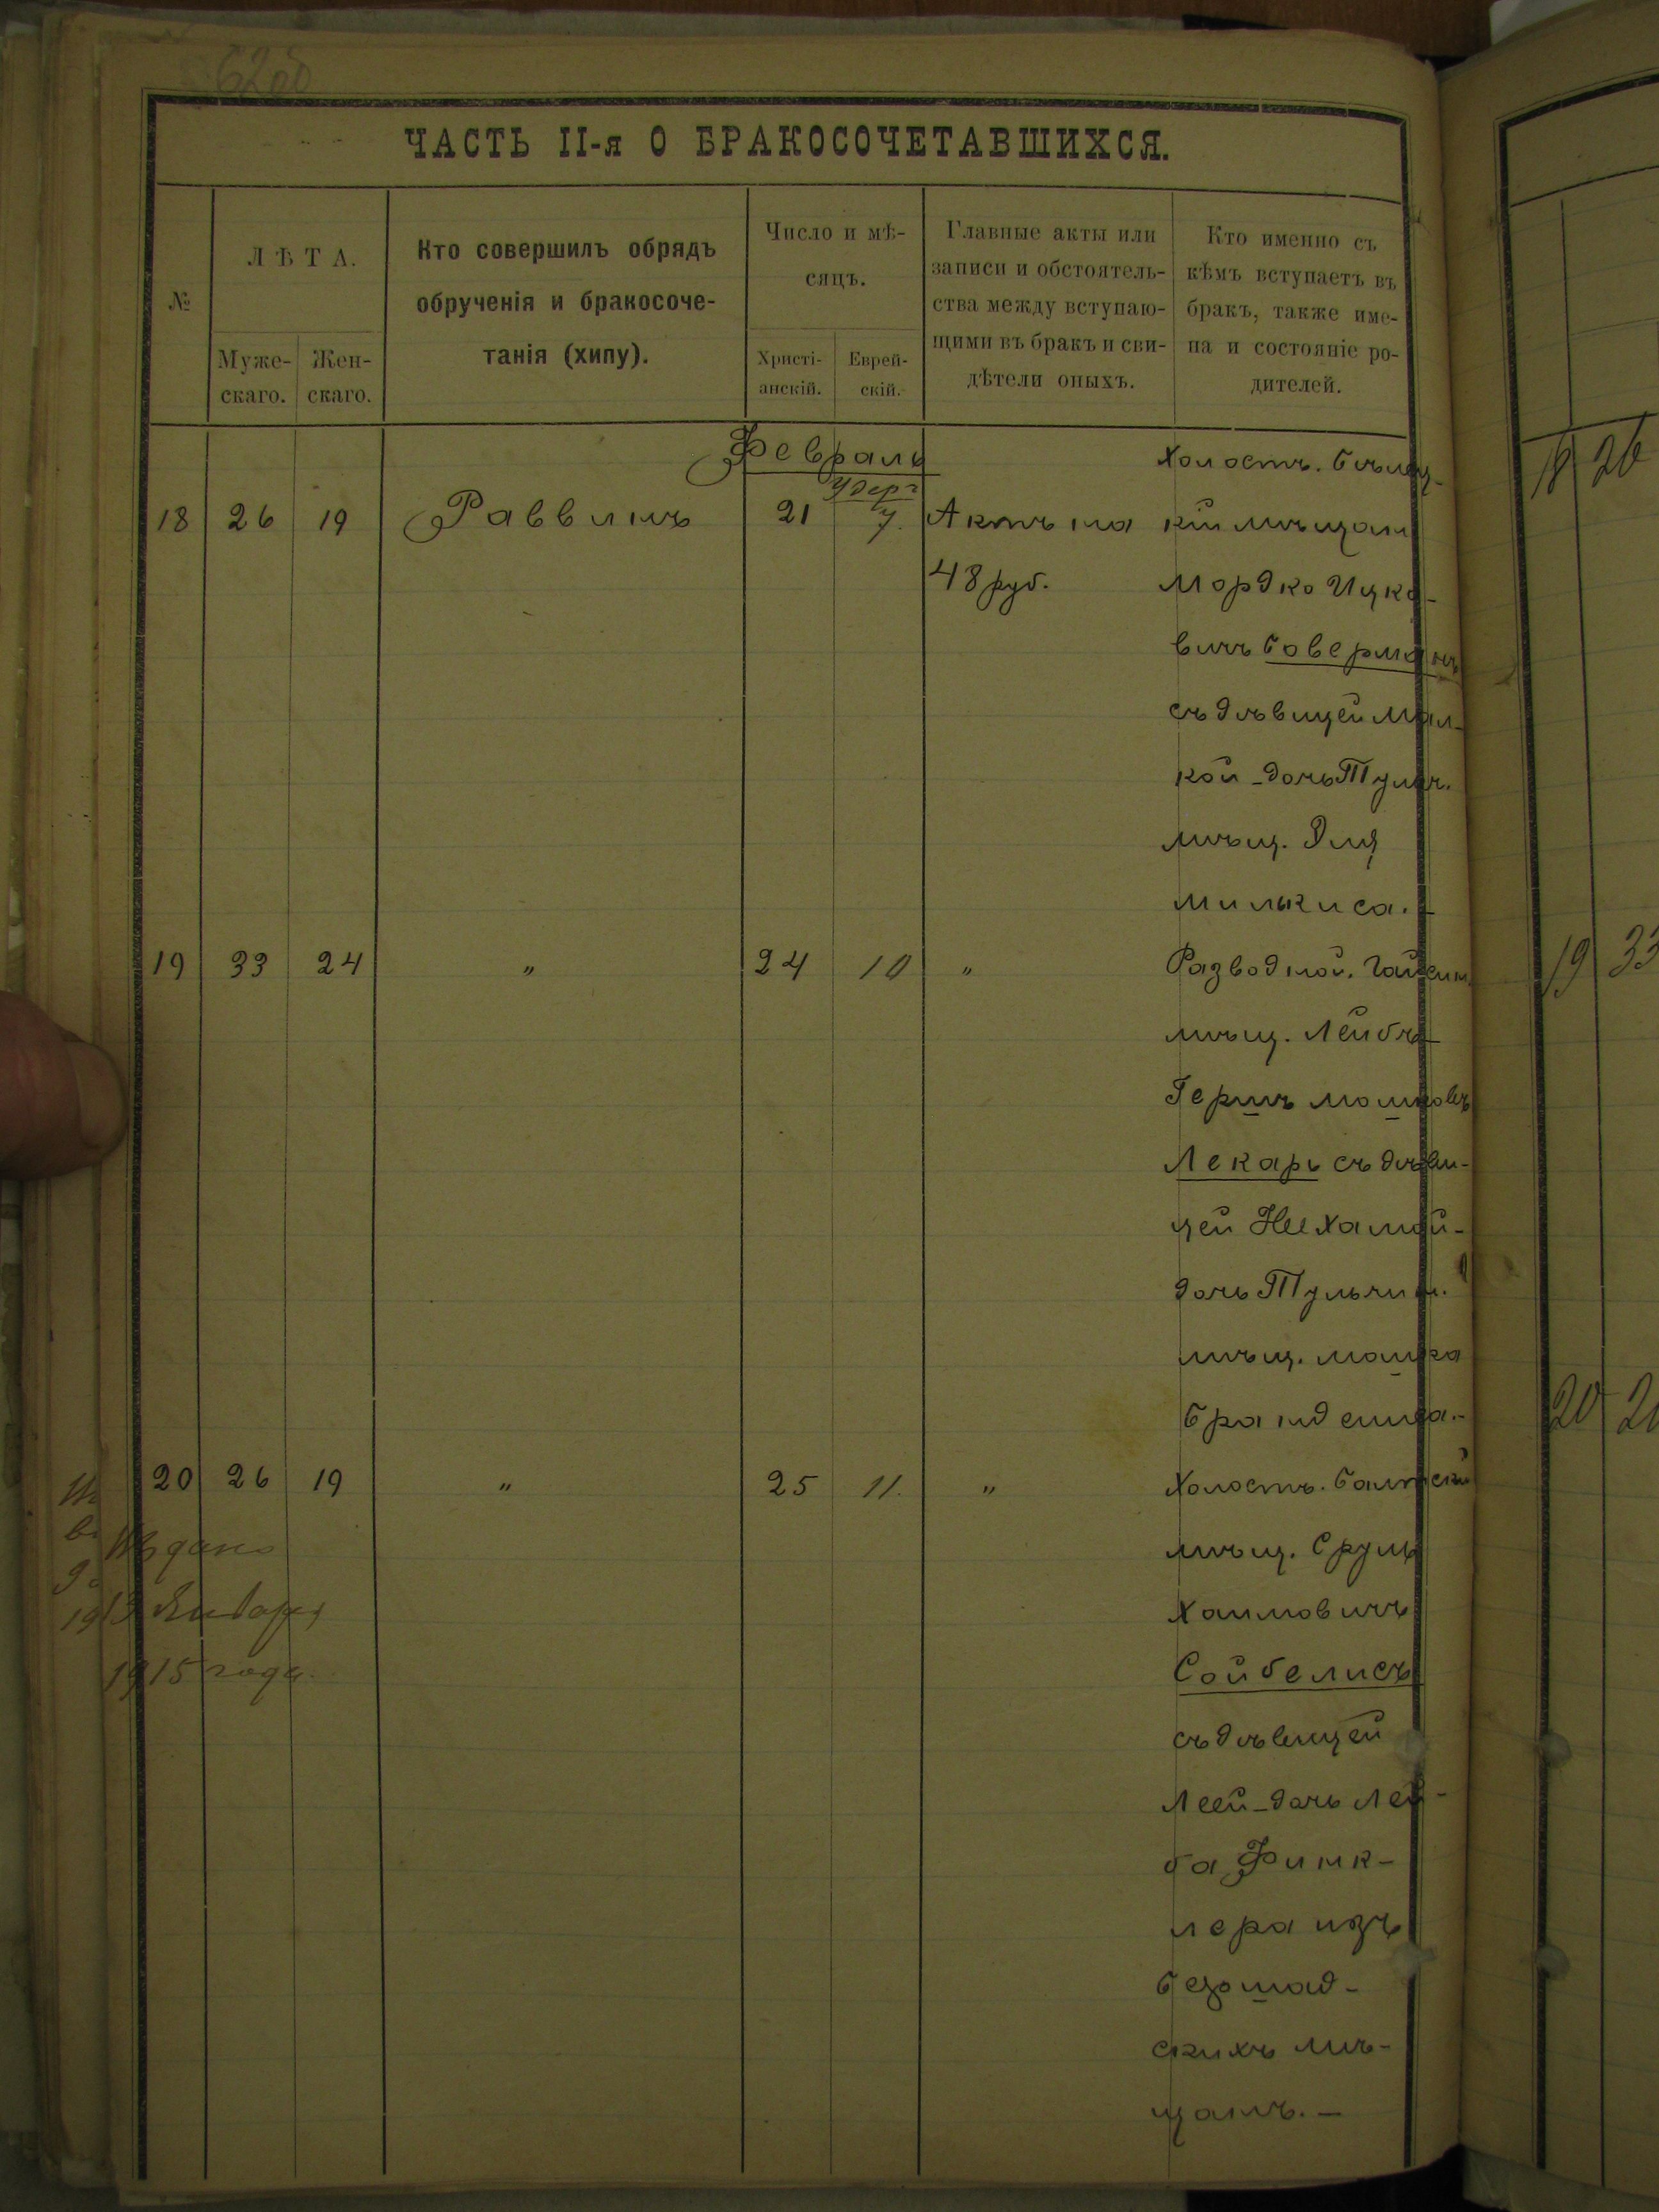 62об
ЧАСТЬ II-я О БРАКОСОЧЕТАВШИХСЯ.
№
ЛѢТА.
Муже-
скаго.
Жен-
скаго.
Кто совершилъ обрядъ
обрученія и бракосоче-
танія (хипу).
Число и мѣ-
сяцъ.
Христі-
анскій.
Еврей-
скій.
Главные акты или
записи и обстоятель-
ства между вступаю-
щими въ бракъ и сви-
дѣтели оныхъ.
Кто именно съ
кѣмъ вступаетъ въ
бракъ, также име-
на и состояніе ро-
дителей.
Февраль
Удеръ
18 26 19 Раввинъ 21 7. Актъ на
48 руб.
Холостъ.
кій мѣщан
Мордко Ицко-
вичъ Соверманъ
съ дѣвицей Мал-
кой - дочь Тульч.
мѣщ.
Милькиса. -
19 33 24 " 24 10 "
Разводной. Гайсин.
мѣщ. Лейбъ-
Гершъ Мошковъ
Лекарь съ дѣви-
цей Нехамой -
дочь Тульчин.
мѣщ. Мошка
Брандениса. -
20 26 19 " 25 11. "
Холостъ. Балтскій
мѣщ. Сруль
Хаимовичъ
Сойбелисъ
съ дѣвицей
Леей - дочь Лей-
ба Финк-
лера изъ
бершад-
скихъ мѣ-
щанъ. -
Выдано
13 Января
1915 года.
18 26
19 33
20